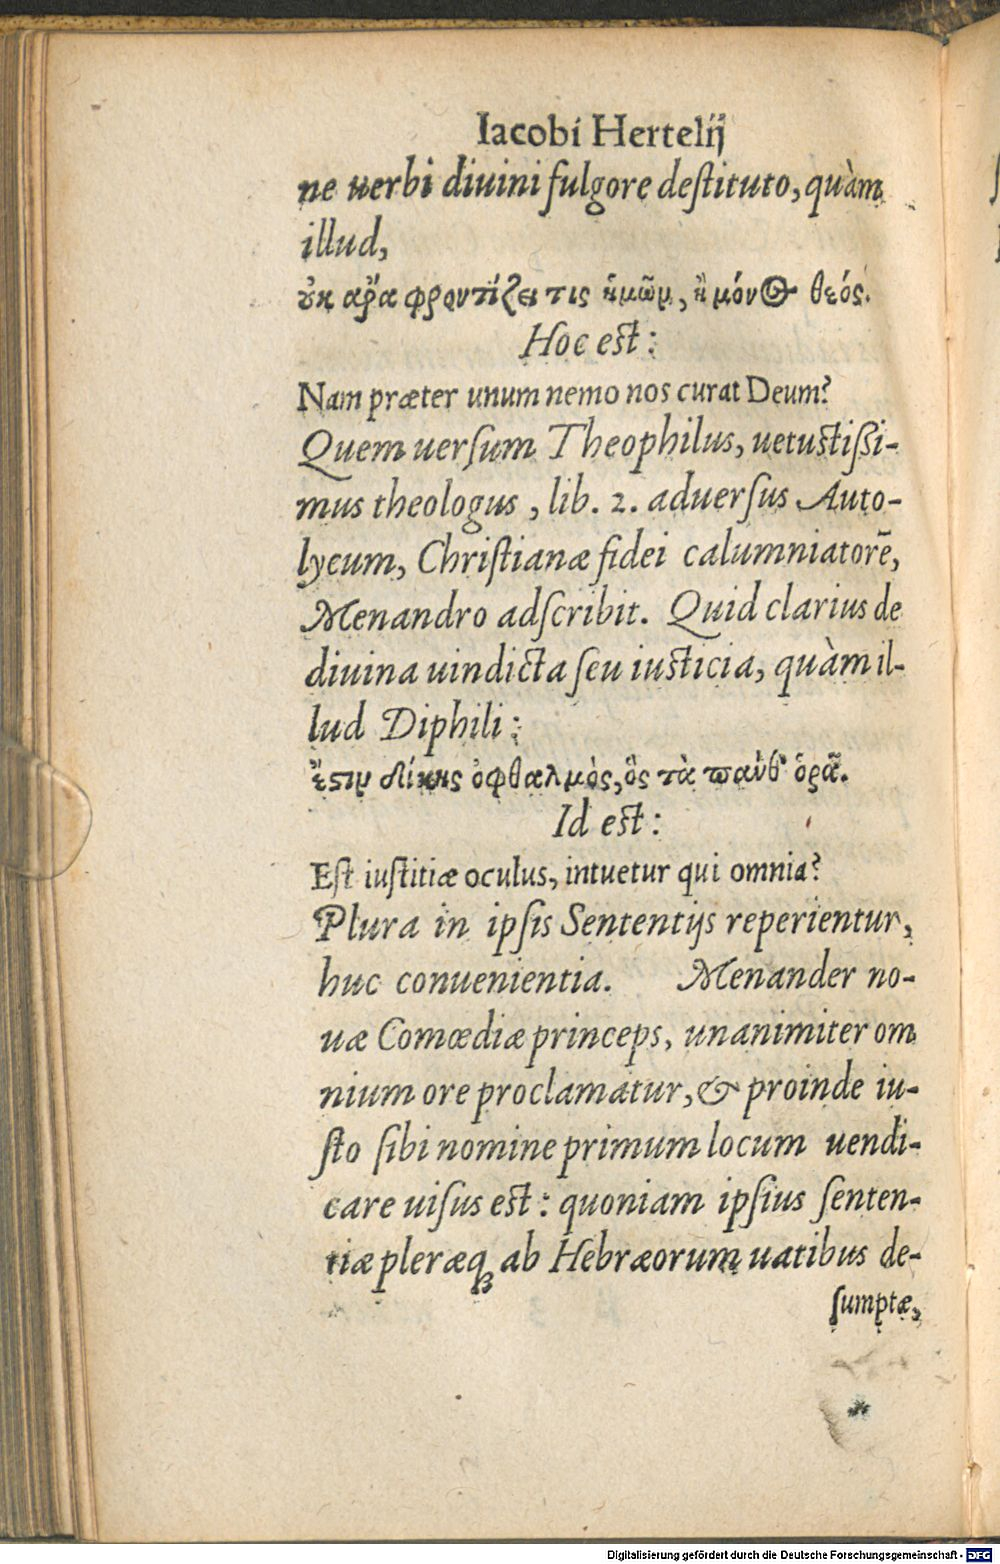 Iacobi Hertelij
ne uerbi diuini fulgore destituto, quàm
illud,
οὐκ ἄρα φροντίζει τις ἡμῶν, ἢ μόνος θεός.
Hoc est:
Nam præter unum nemo nos curat Deum?
Quem uersum Theophilus, uetustissi-
mus theologus, lib. 2. aduersus Auto-
lycum, Christianæ fidei calumniatorẽ,
Menandro adscribit. Quid clarius de
diuina uindicta seu iusticia, quàm il-
lud Diphili:
ἔστιν δίκης ὀφθαλμὸς, ὃς τὰ πανθ' ὁρᾶ.
Id est:
Est iustitiæ oculus, intuetur qui omnia?
Plura in ipsis Sententijs reperientur,
huc conuenientia. Menander no-
uæ Comœdiæ princeps, unanimiter om
nium ore proclamatur, & proinde iu-
sto sibi nomine primum locum uendi-
care uisus est: quoniam ipsius senten-
tiæ pleræq; ab Hebræorum uatibus de-
sumptæ,
Digitalisierung gefördert durch die Deutsche Forschungsgemeinschaft - DFG